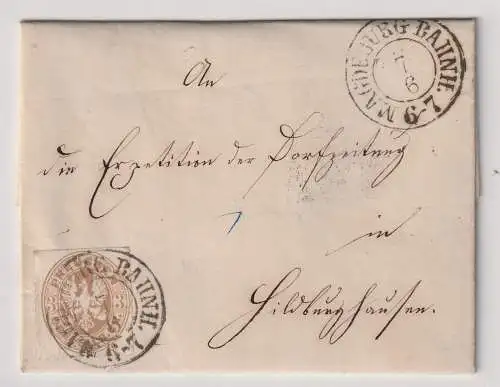 MAGDEBURG BAHNH.
7
6
6-7
An
die Expetition der Dorfzeitung
in
Hildburghausen.
3 3
MAGDEBURG BAHNH.
6-7